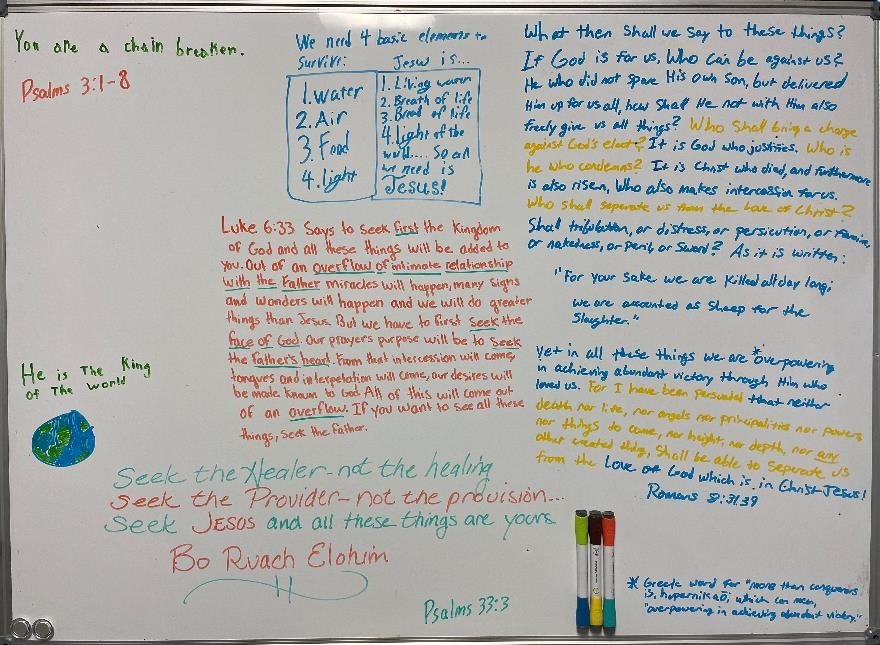 You are a chain breaker.
Psalms 3:1-8
We need 4 basic elements to
survive:
1. Water
2. Air
3. Food
4. light
Jesus is...
1. Living water
2. Breath of life
3. Bread of life
4. Light of the
world.... So all
we need is
Jesus!
Luke 6:33 Says to seek first the Kingdom
of God and all these things will be added to
you. Out of an overflow of intimate relationship
with the Father miracles will happen, many signs
and wonders will happen and we will do greater
things than Jesus. But we have to first seek the
face of God. Our prayers purpose will be to seek
the Father's heart. From that intercession will come,
tongues and interpetation will come, our desires will
be made known to God. All of this will come out
of an overflow. If you want to see all these
things, seek the Father.
He is The King
of The world
Seek the Healer-not the healing
Seek the Provider-not the provision...
Seek JESUS and all these things are yours
Bo Ruach Elohim
Psalms 33:3
What then Shall we Say to these things?
If God is for us, Who can be against us?
He who did not spare His own Son, but delivered
Him up for us all, how Shall He not with Him also
freely give us all things? Who Shall bring a charge
against God's elect? It is God who justifies. Who is
he who condemns? It is Christ who died, and furthermore
is also risen, Who also makes intercession for us.
Who shall seperate us from the Love of Christ?
Shall tribulation, or distress, or persicution, or famine,
or nakedness, or peril, or Sword? As it is written:
"For your Sake we are Killed all day long;
We are accounted as Sheep for the
Slaughter."
Yet in all these things we are *overpowering
in achieving abundant victory through Him who
loved us. For I have been persuaded that neither
death nor life, nor angels nor principalities nor powers
nor things to come, nor height, nor depth, nor any
other created thing, Shall be able to Seperate us
from the Love of God which is in Christ Jesus!
Romans 8:31-39
* Greek word for "more than conquerors
is, which can mean,
"overpowering in achieving abundant victory."